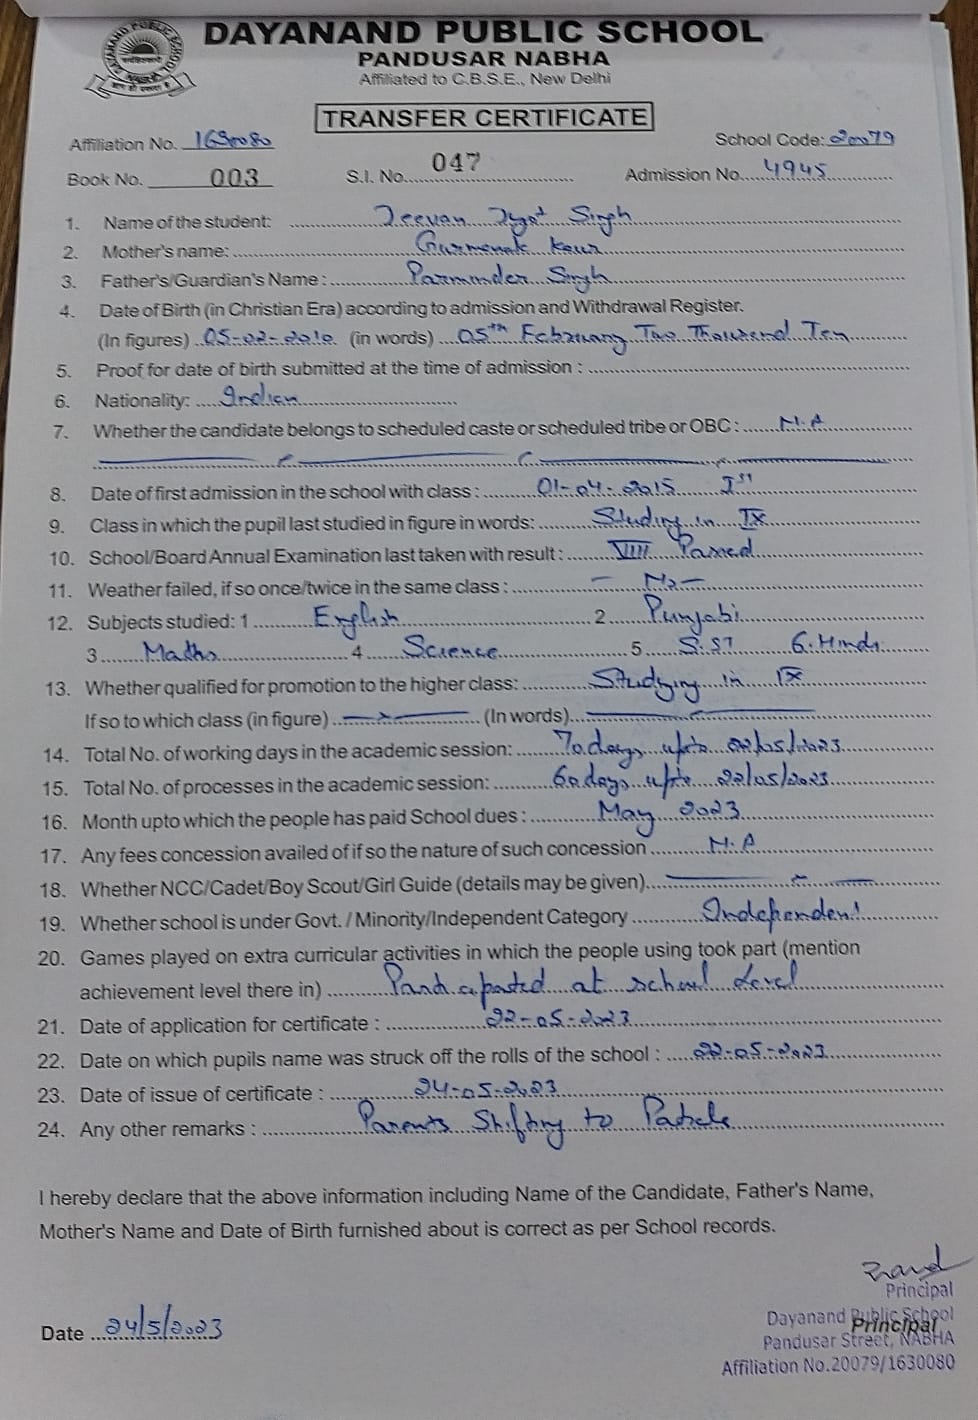 DAYANAND PUBLIC SCHOOL
PANDUSAR NABHA
Affiliated to C.B.S.E., New Delhi
TRANSFER CERTIFICATE
Affiliation No. School Code: 20079
Book No. 003 S.I. No. 047 Admission No. 4945
1. Name of the student: Jeevan Jyot Singh
2. Mother's name: Kaur
3. Father's/Guardian's Name : Parminder Singh
4. Date of Birth (in Christian Era) according to admission and Withdrawal Register.
(In figures) 05-02-2010 (in words) 05th February Two Thousand Ten
5. Proof for date of birth submitted at the time of admission :
6. Nationality: Indian
7. Whether the candidate belongs to scheduled caste or scheduled tribe or OBC : N.A
8. Date of first admission in the school with class : 01-04-2015 Ist
9. Class in which the pupil last studied in figure in words: Studing in IX
10. School/Board Annual Examination last taken with result : VIII Passed
11. Weather failed, if so once/twice in the same class : - No -
12. Subjects studied: 1 English 2 Punjabi
3 Maths 4 Science 5 S.ST 6. Hindi
13. Whether qualified for promotion to the higher class: Studying in IX
If so to which class (in figure) (In words)
14. Total No. of working days in the academic session: 70 days upto 22/05/2023
15. Total No. of processes in the academic session: 60 days upto 22/05/2023
16. Month upto which the people has paid School dues : May 2023
17. Any fees concession availed of if so the nature of such concession N.A
18. Whether NCC/Cadet/Boy Scout/Girl Guide (details may be given)
19. Whether school is under Govt. / Minority/Independent Category Independent
20. Games played on extra curricular activities in which the people using took part (mention
achievement level there in) Participated at school level
21. Date of application for certificate : 22-05-2023
22. Date on which pupils name was struck off the rolls of the school : 22-05-2023
23. Date of issue of certificate : 24-05-2023
24. Any other remarks : Parents Shifting to Patiala
I hereby declare that the above information including Name of the Candidate, Father's Name,
Mother's Name and Date of Birth furnished about is correct as per School records.
Principal
Dayanand Public School
Principal
Pandusar Street, NABHA
Date 24/5/2023
Affiliation No.20079/1630080